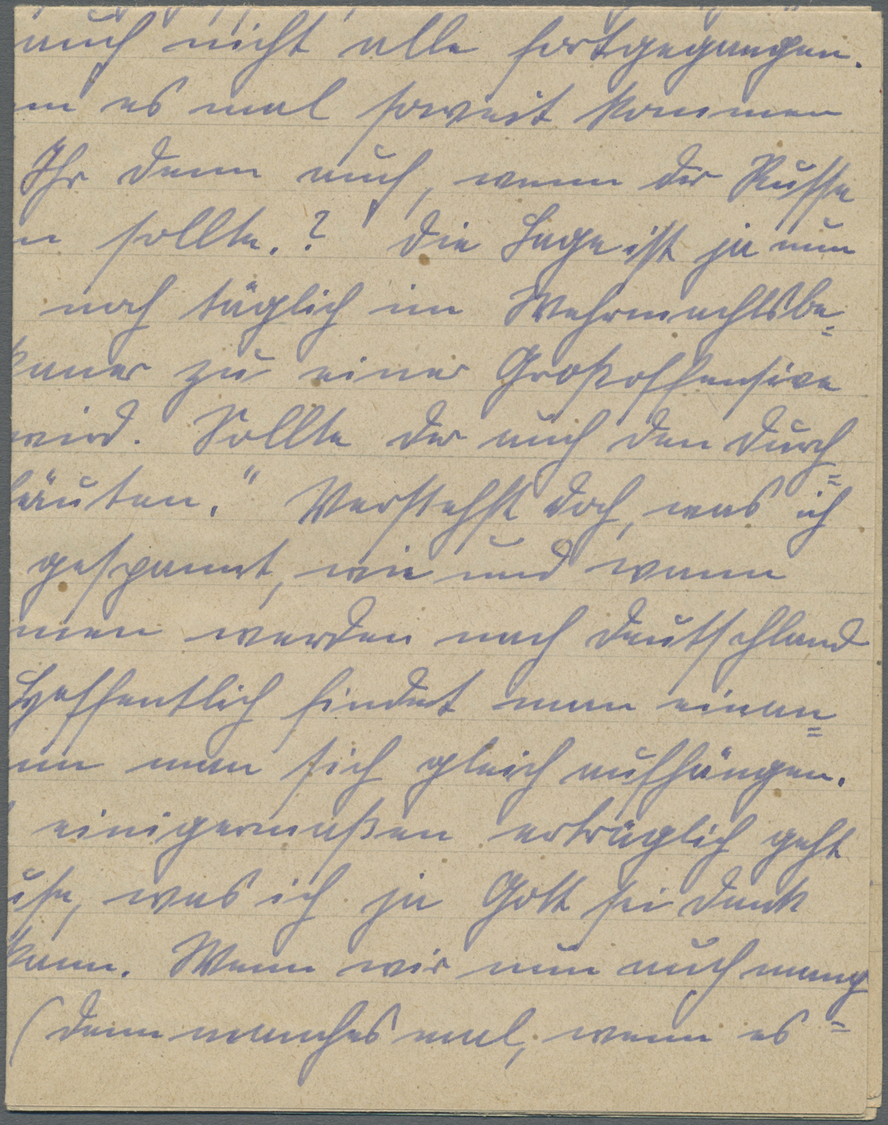 auch nicht alle fortgegangen.
es mal soweit kommen
Ihr denn auch, wenn der Russe
sollte.? Die Lage ist ja nun
noch täglich im Wehrmachtsbe=
zu einer Großoffensive
wird. Sollte der auch den Durch=
läuten." Verstehst doch, was ich
gespannt, wie und wann
men werden nach Deutschland
Hoffentlich findet man einan=
man sich gleich aufhängen.
einigermaßen erträglich geht
was ich ja Gott sei dank
kann. Wenn wir nun auch mang
(denn manches mal, wenn es =